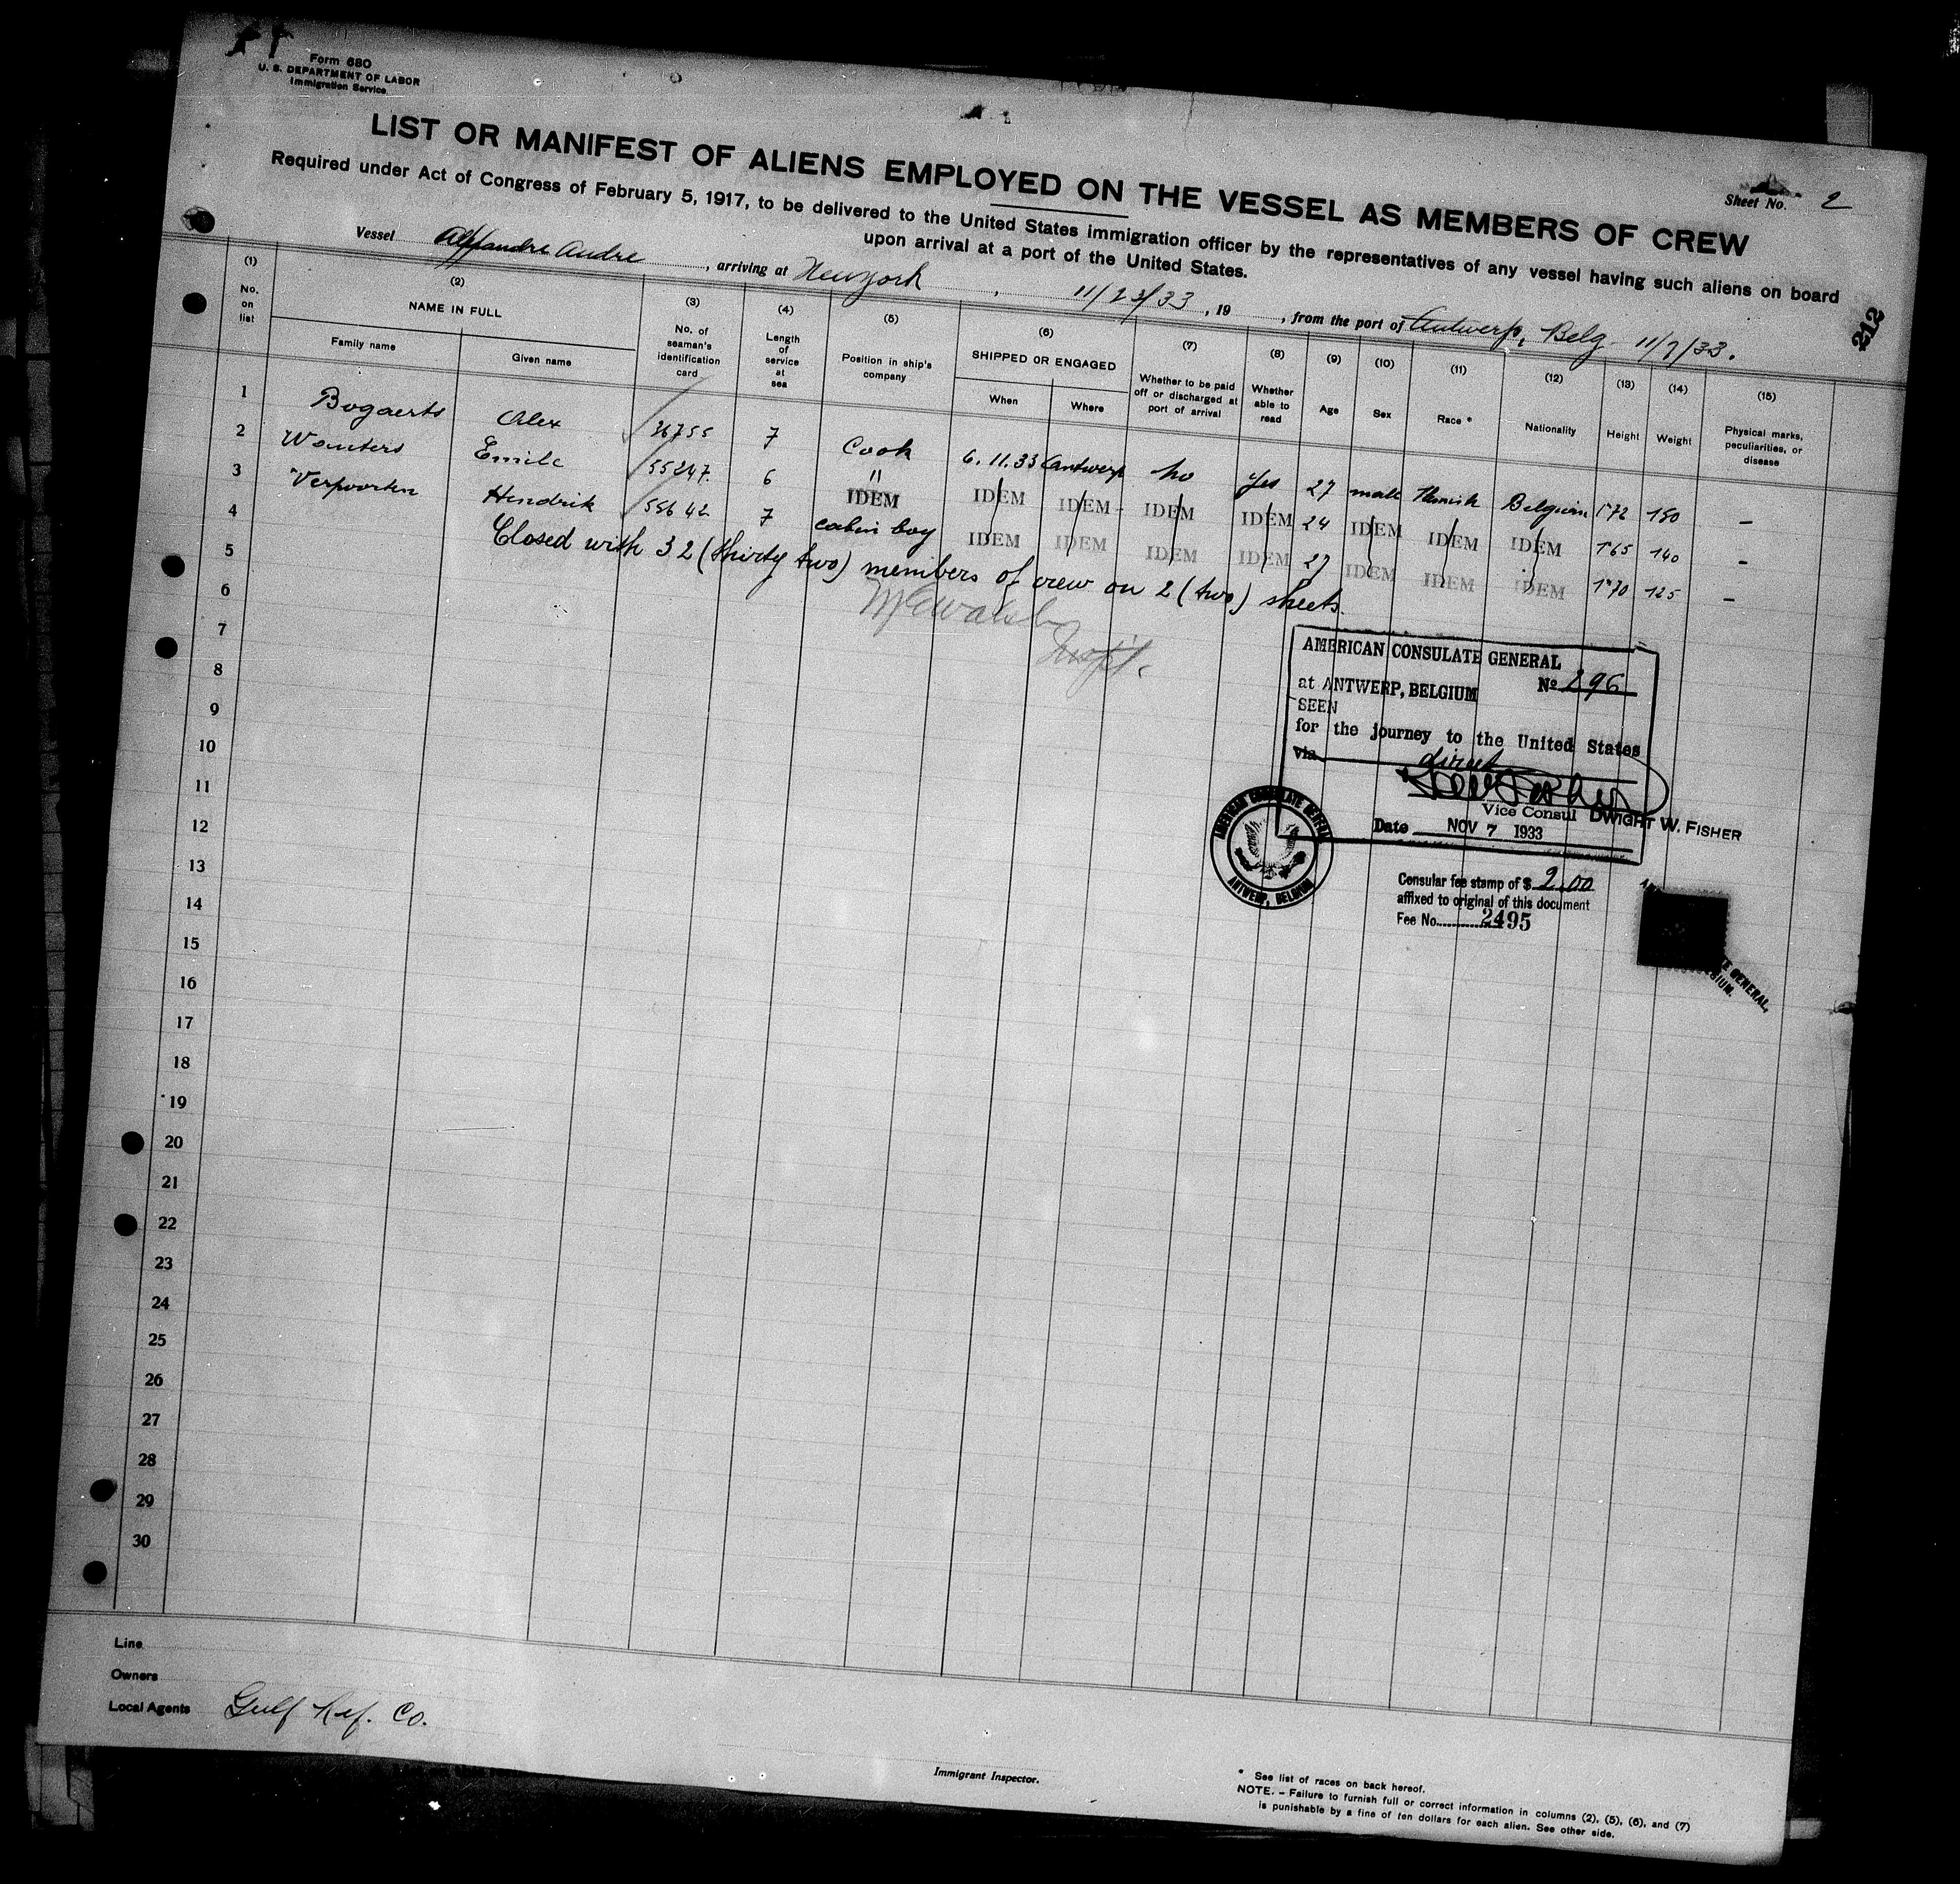 Form 680
U. S. DEPARTMENT OF LABOR
Immigration Service
Sheet No. 2
LIST OR MANIFEST OF ALIENS EMPLOYED ON THE VESSEL AS MEMBERS OF CREW
Required under Act of Congress of February 5, 1917, to be delivered to the United States immigration officer by the representatives of any vessel having such aliens on board
upon arrival at a port of the United States.
212
Vessel Alexandre Andre, arriving at New york, 11/23/33, 19 , from the port of Antwerp, Belg. 11/7/33.
(1) (2) (3) (4) (5) (6) (7) (8) (9) (10) (11) (12) (13) (14) (15)
No. on list
NAME IN FULL
Family name
Given name
No. of seaman's identification card
Length of service at sea
Position in ship's company
SHIPPED OR ENGAGED
When
Where
Whether to be paid off or discharged at port of arrival
Whether able to read
Age
Sex
Race *
Nationality
Height
Weight
Physical marks, peculiarities, or disease
1 Bogaerts Alex 26755 7 Cook 6.11.33 Antwerp no yes 27 male Flemish Belgium 1m72 150 —
2 Wouters Emile 55247. 6 " IDEM IDEM IDEM IDEM IDEM 24 IDEM IDEM IDEM 1m65 140 —
3 Verpoorten Hendrik 55642 7 cabin boy IDEM IDEM IDEM IDEM 27 IDEM IDEM IDEM 1m70 125 —
4 Closed with 32 (thirty two) members of crew on 2 (two) sheets.
5
6
7
8
9
10
11
12
13
14
15
16
17
18
19
20
21
22
23
24
25
26
27
28
29
30
AMERICAN CONSULATE GENERAL
at ANTWERP, BELGIUM No 296
SEEN
for the journey to the United States
via direct
Vice Consul DWIGHT W. FISHER
Date NOV 7 1933
AMERICAN CONSULATE GENERAL
ANTWERP, BELGIUM
Consular fee stamp of $ 2.00
affixed to original of this document
Fee No. 2495
Line
Owners
Local Agents Gulf Ref. Co.
Immigrant Inspector.
* See list of races on back hereof.
NOTE. – Failure to furnish full or correct information in columns (2), (5), (6), and (7)
is punishable by a fine of ten dollars for each alien. See other side.